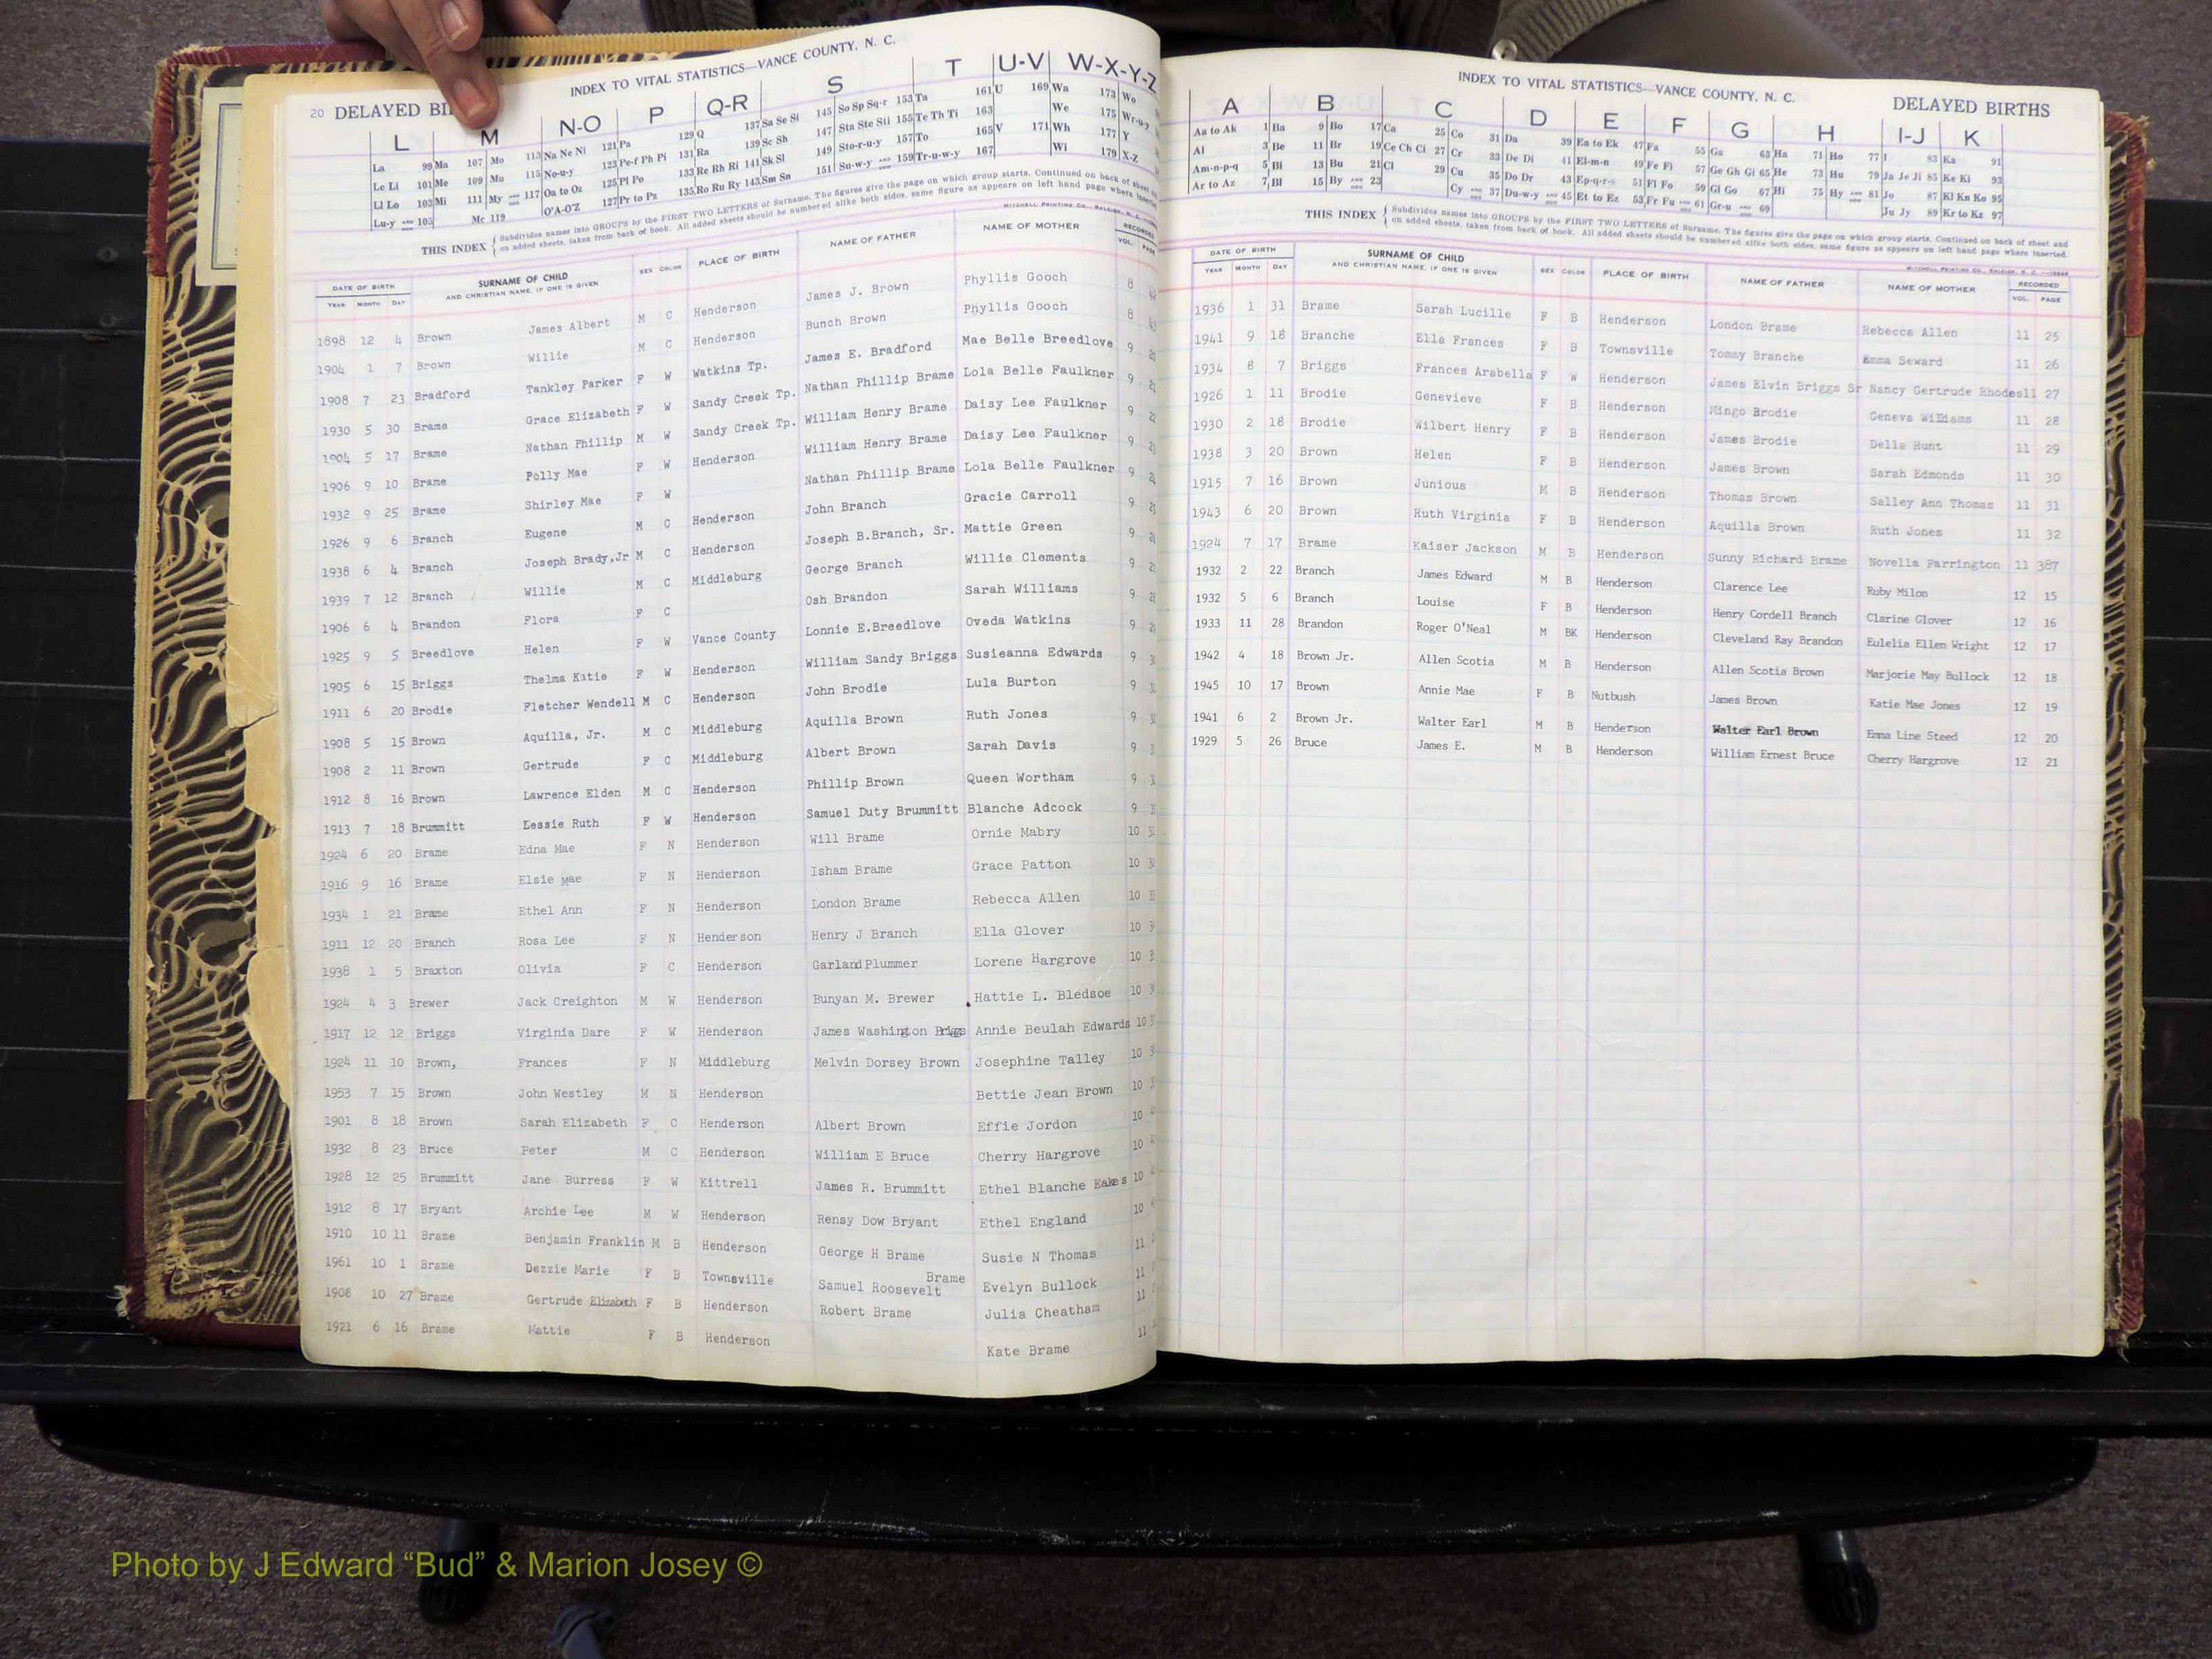 20 DELAYED BI
INDEX TO VITAL STATISTICS—VANCE COUNTY, N. C.
L M N-O P Q-R S T U-V W-X-Y-Z
La 99 Ma 107 Mo 113 Na Ne Ni 121 Pa 129 Q 137 Sa Se Si 145 So Sp Sq-r 153 Ta 161 U 169 Wa 173 Wo
Le Li 101 Me 109 Mu 115 No-u-y 123 Pe-f Ph Pi 131 Ra 139 Sc Sh 147 Sta Ste Sti 155 Te Th Ti 163 We 175 Wr-u-y
Ll Lo 103 Mi 111 My 117 Oa to Oz 125 Pl Po 133 Re Rh Ri 141 Sk Sl 149 Sto-r-u-y 157 To 165 V 171 Wh 177 Y
Lu-y 103 Mc 119 O'A-O'Z 127 Pr to Pz 135 Ro Ru Ry 143 Sm Sn 151 Su-w-y 159 Tr-u-w-y 167 Wi 179 X-Z
THIS INDEX { Subdivides names into GROUPS by the FIRST TWO LETTERS of Surname. The figures give the page on which group starts. Continued on back of sheet
on added sheets, taken from back of book. All added sheets should be numbered alike both sides, same figure as appears on left hand page where inserted
DATE OF BIRTH SURNAME OF CHILD SEX COLOR PLACE OF BIRTH NAME OF FATHER NAME OF MOTHER RECORDED
YEAR MONTH DAY AND CHRISTIAN NAME, IF ONE IS GIVEN VOL. PAGE
1898 12 4 Brown James Albert M C Henderson James J. Brown Phyllis Gooch 8
1904 1 7 Brown Willie M C Henderson Bunch Brown Phyllis Gooch 8
1908 7 23 Bradford Tankley Parker F W Watkins Tp. James E. Bradford Mae Belle Breedlove 9
1930 5 30 Brame Grace Elizabeth F W Sandy Creek Tp. Nathan Phillip Brame Lola Belle Faulkner 9
1904 5 17 Brame Nathan Phillip M W Sandy Creek Tp. William Henry Brame Daisy Lee Faulkner 9
1906 9 10 Brame Polly Mae F W Henderson William Henry Brame Daisy Lee Faulkner 9
1932 9 25 Brame Shirley Mae F W Nathan Phillip Brame Lola Belle Faulkner 9
1926 9 6 Branch Eugene M C Henderson John Branch Gracie Carroll 9
1938 6 4 Branch Joseph Brady,Jr M C Henderson Joseph B.Branch, Sr. Mattie Green 9
1939 7 12 Branch Willie M C Middleburg George Branch Willie Clements 9
1906 6 4 Brandon Flora F C Osh Brandon Sarah Williams 9
1925 9 5 Breedlove Helen F W Vance County Lonnie E.Breedlove Oveda Watkins 9
1905 6 15 Briggs Thelma Katie F W Henderson William Sandy Briggs Susieanna Edwards 9
1911 6 20 Brodie Fletcher Wendell M C Henderson John Brodie Lula Burton 9
1908 5 15 Brown Aquilla, Jr. M C Middleburg Aquilla Brown Ruth Jones 9
1908 2 11 Brown Gertrude F C Middleburg Albert Brown Sarah Davis 9
1912 8 16 Brown Lawrence Elden M C Henderson Phillip Brown Queen Wortham 9
1913 7 18 Brummitt Lessie Ruth F W Henderson Samuel Duty Brummitt Blanche Adcock 9
1924 6 20 Brame Edna Mae F N Henderson Will Brame Ornie Mabry 10
1916 9 16 Brame Elsie Mae F N Henderson Isham Brame Grace Patton 10
1934 1 21 Brame Ethel Ann F N Henderson London Brame Rebecca Allen 10
1911 12 20 Branch Rosa Lee F N Henderson Henry J Branch Ella Glover 10
1938 1 5 Braxton Olivia F C Henderson Garland Plummer Lorene Hargrove 10
1924 4 3 Brewer Jack Creighton M W Henderson Bunyan M. Brewer Hattie L. Bledsoe 10
1917 12 12 Briggs Virginia Dare F W Henderson James Washington Briggs Annie Beulah Edwards 10
1924 11 10 Brown, Frances F N Middleburg Melvin Dorsey Brown Josephine Talley 10
1953 7 15 Brown John Westley M N Henderson Bettie Jean Brown 10
1901 8 18 Brown Sarah Elizabeth F C Henderson Albert Brown Effie Jordon 10
1932 8 23 Bruce Peter M C Henderson William E Bruce Cherry Hargrove 10
1928 12 25 Brummitt Jane Burress F W Kittrell James R. Brummitt Ethel Blanche Eakes 10
1912 8 17 Bryant Archie Lee M W Henderson Rensy Dow Bryant Ethel England 10
1910 10 11 Brame Benjamin Franklin M B Henderson George H Brame Susie N Thomas 11
1961 10 1 Brame Dezzie Marie F B Townsville Samuel Roosevelt Brame Evelyn Bullock 11
1908 10 27 Brame Gertrude Elizabeth F B Henderson Robert Brame Julia Cheatham 11
1921 6 16 Brame Mattie F B Henderson Kate Brame 11
INDEX TO VITAL STATISTICS—VANCE COUNTY, N. C.
DELAYED BIRTHS
A B C D E F G H I-J K
Aa to Ak 1 Ba 9 Bo 17 Ca 25 Co 31 Da 39 Ea to Ek 47 Fa 55 Ga 63 Ha 71 Ho 77 I 83 Ka 91
Al 3 Be 11 Br 19 Ce Ch Ci 27 Cr 33 De Di 41 El-m-n 49 Fe Fi 57 Ge Gh Gi 65 He 73 Hu 79 Ja Je Ji 85 Ke Ki 93
Am-n-p-q 5 Bi 13 Bu 21 Cl 29 Cu 35 Do Dr 43 Ep-q-r-s 51 Fl Fo 59 Gl Go 67 Hi 75 Hy 81 Jo 87 Kl Kn Ko 95
Ar to Az 7 Bl 15 By 23 Cy 37 Du-w-y 45 Et to Ez 53 Fr Fu 61 Gr-u 69 Ju Jy 89 Kr to Kz 97
THIS INDEX { Subdivides names into GROUPS by the FIRST TWO LETTERS of Surname. The figures give the page on which group starts. Continued on back of sheet and
on added sheets, taken from back of book. All added sheets should be numbered alike both sides, same figure as appears on left hand page where inserted.
DATE OF BIRTH SURNAME OF CHILD SEX COLOR PLACE OF BIRTH NAME OF FATHER NAME OF MOTHER RECORDED
YEAR MONTH DAY AND CHRISTIAN NAME, IF ONE IS GIVEN VOL. PAGE
1936 1 31 Brame Sarah Lucille F B Henderson London Brame Rebecca Allen 11 25
1941 9 18 Branche Ella Frances F B Townsville Tommy Branche Emma Seward 11 26
1934 8 7 Briggs Frances Arabella F W Henderson James Elvin Briggs Sr Nancy Gertrude Rhodes11 27
1926 1 11 Brodie Genevieve F B Henderson Mingo Brodie Geneva Williams 11 28
1930 2 18 Brodie Wilbert Henry F B Henderson James Brodie Della Hunt 11 29
1938 3 20 Brown Helen F B Henderson James Brown Sarah Edmonds 11 30
1915 7 16 Brown Junious M B Henderson Thomas Brown Salley Ann Thomas 11 31
1943 6 20 Brown Ruth Virginia F B Henderson Aquilla Brown Ruth Jones 11 32
1924 7 17 Brame Kaiser Jackson M B Henderson Sunny Richard Brame Novella Parrington 11 387
1932 2 22 Branch James Edward M B Henderson Clarence Lee Ruby Milon 12 15
1932 5 6 Branch Louise F B Henderson Henry Cordell Branch Clarine Glover 12 16
1933 11 28 Brandon Roger O'Neal M BK Henderson Cleveland Ray Brandon Eulelia Ellen Wright 12 17
1942 4 18 Brown Jr. Allen Scotia M B Henderson Allen Scotia Brown Marjorie May Bullock 12 18
1945 10 17 Brown Annie Mae F B Nutbush James Brown Katie Mae Jones 12 19
1941 6 2 Brown Jr. Walter Earl M B Henderson Walter Earl Brown Emma Line Steed 12 20
1929 5 26 Bruce James E. M B Henderson William Ernest Bruce Cherry Hargrove 12 21
Photo by J Edward “Bud” & Marion Josey ©